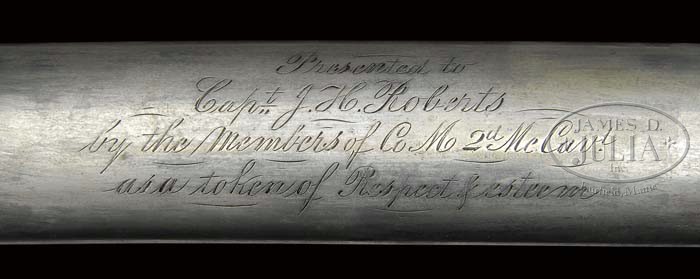 Presented to
Capt. J. H. Roberts
by the Members of Co M 2d Me Cav.
as a token of Respect & esteem
JAMES D.
JULIA
Inc.
Fairfield, Maine